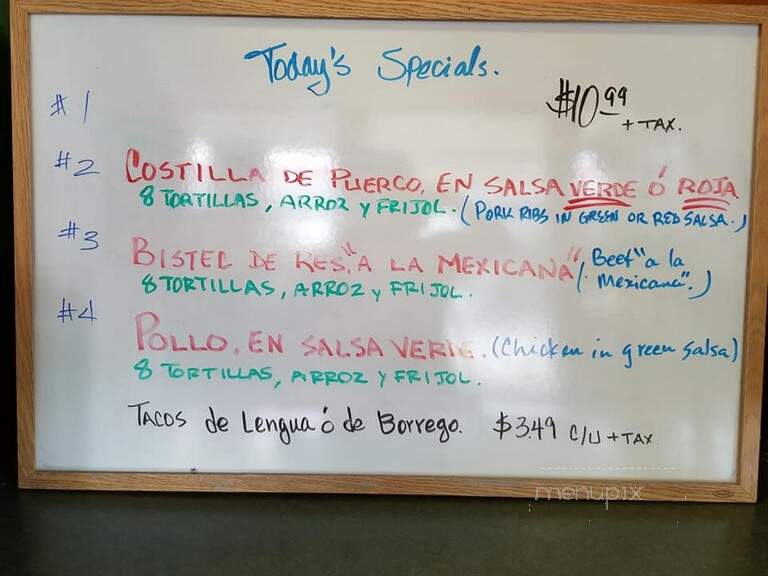 Today's Specials.
$10.99 + TAX.
#1
#2 COSTILLA DE PUERCO, EN SALSA VERDE Ó ROJA
8 TORTILLAS, ARROZ y FRIJOL. (PORK RIBS IN GREEN OR RED SALSA.)
#3
BISTEC DE RES, "A LA MEXICANA" (Beef "a la
8 TORTILLAS, ARROZ y FRIJOL. Mexicana".)
#4
POLLO, EN SALSA VERDE. (Chicken in green salsa)
8 TORTILLAS, ARROZ y FRIJOL.
TACOS de Lengua ó de Borrego. $3.49 c/u + TAX
menupix